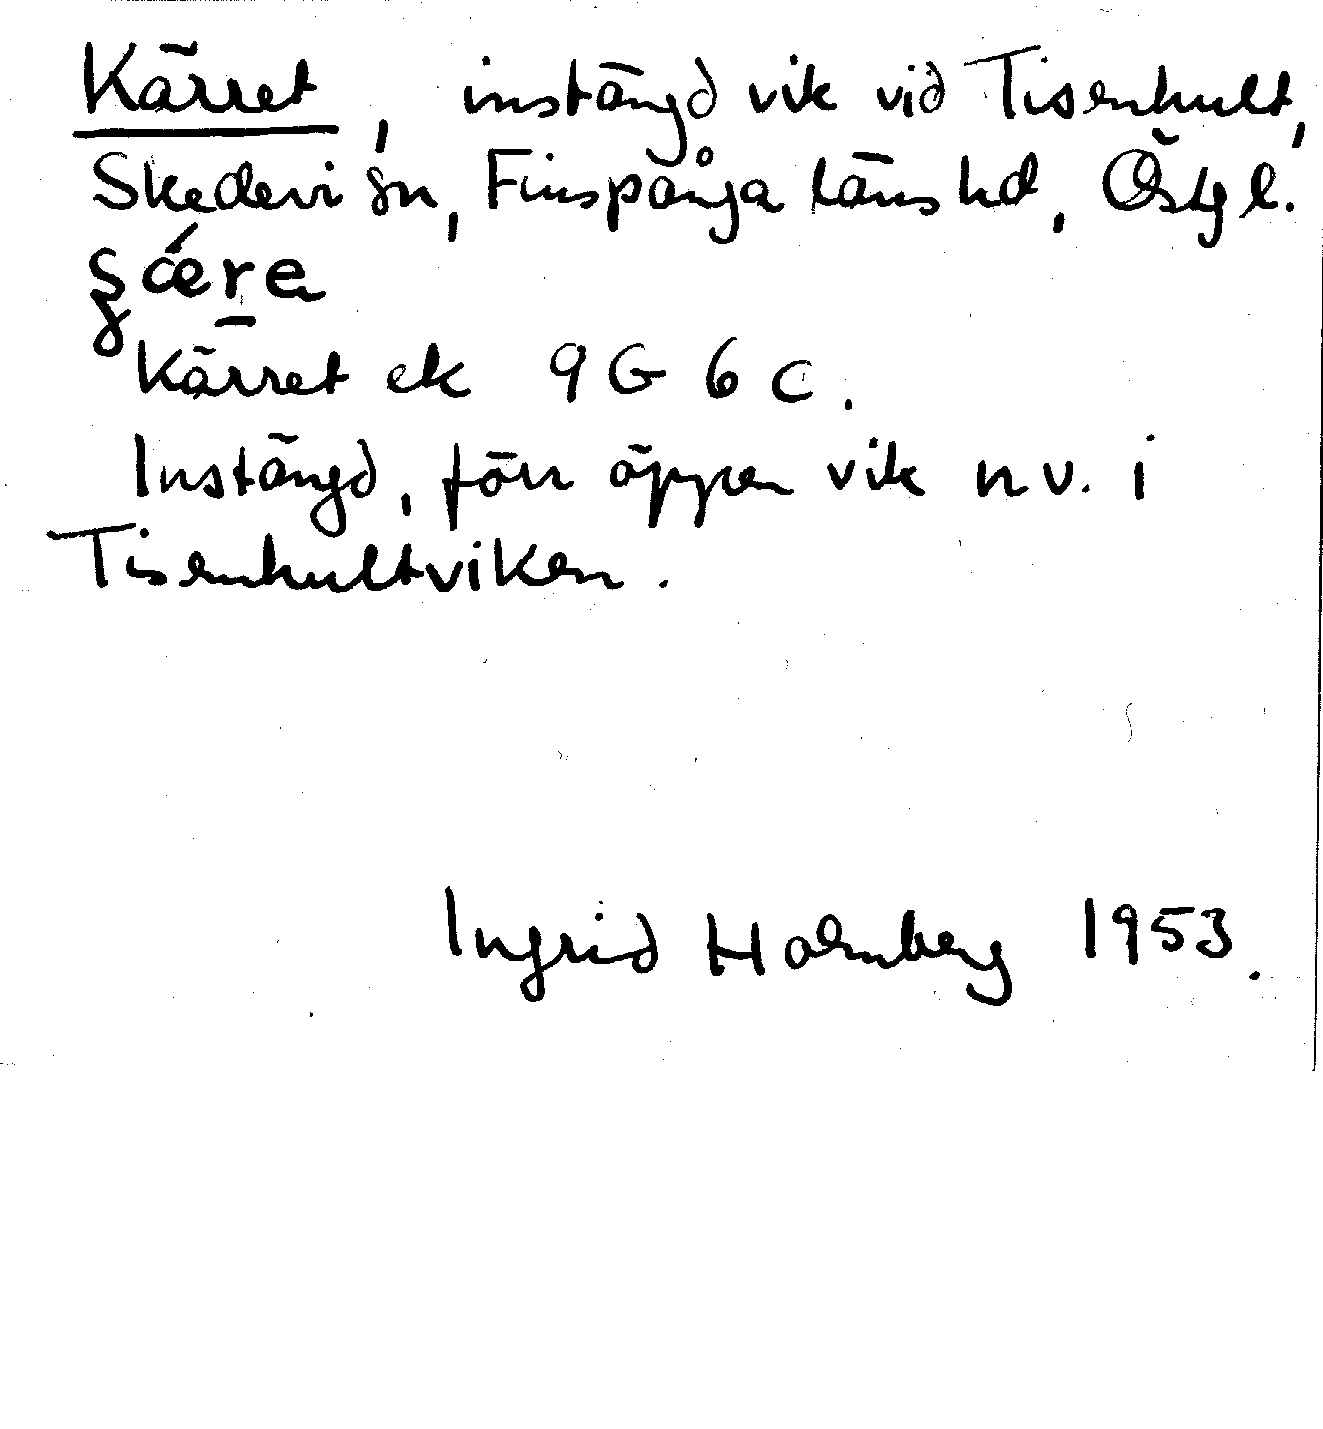 Kärret, instängd vik vid Tisenhult,
Skedevi sn, Finspånga läns hd, Östgl.
Kärret ek 9G 6c.
Instängd, förr öppen vik n v. i
Tisenhultviken.
Ingrid Holmberg 1953.